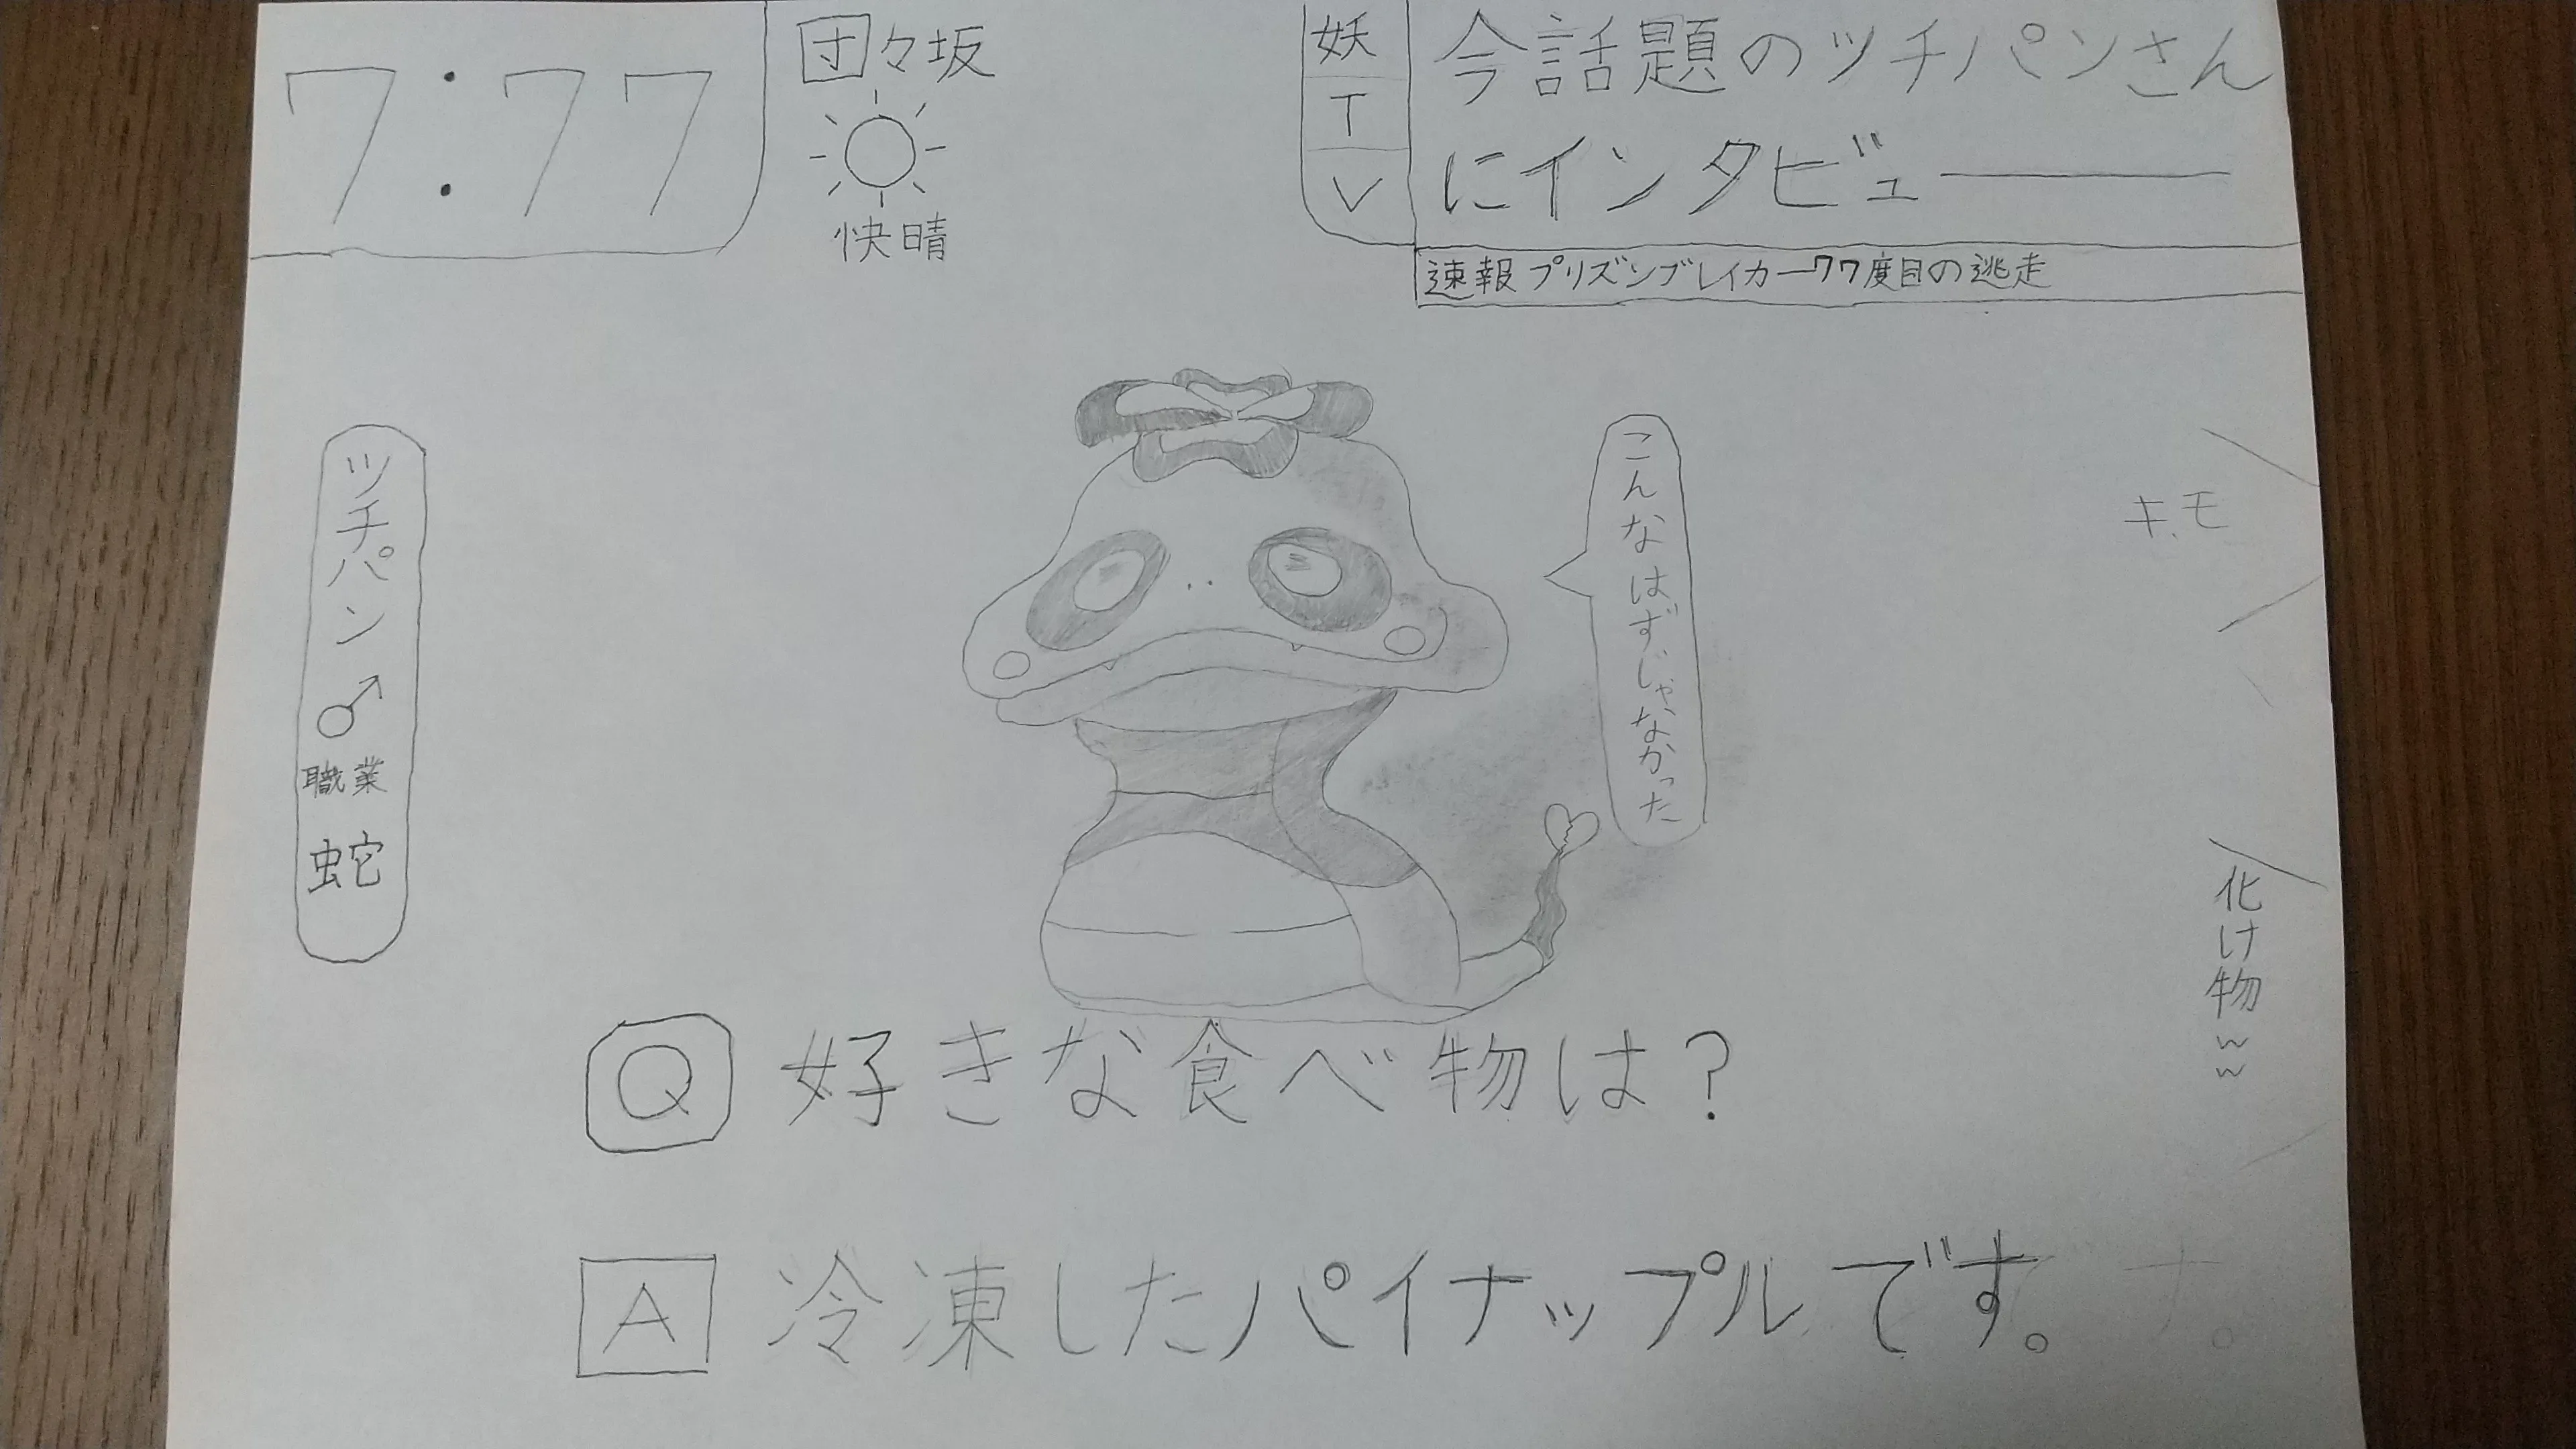 7:77
団々坂
快晴
妖TV
今話題のツチパンさん
にインタビュー
速報 プリズンブレイカー77度目の逃走
ツチパン♂
職業
蛇
こんなはずじゃなかった
キモ
化け物ww
Q 好きな食べ物は?
A 冷凍したパイナップルです。